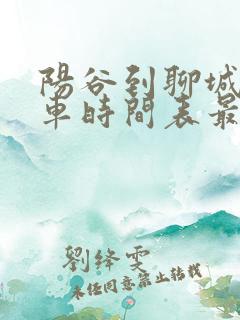 陽谷到聊城
車時間表最
劉絳雯
未經同意禁止轉載